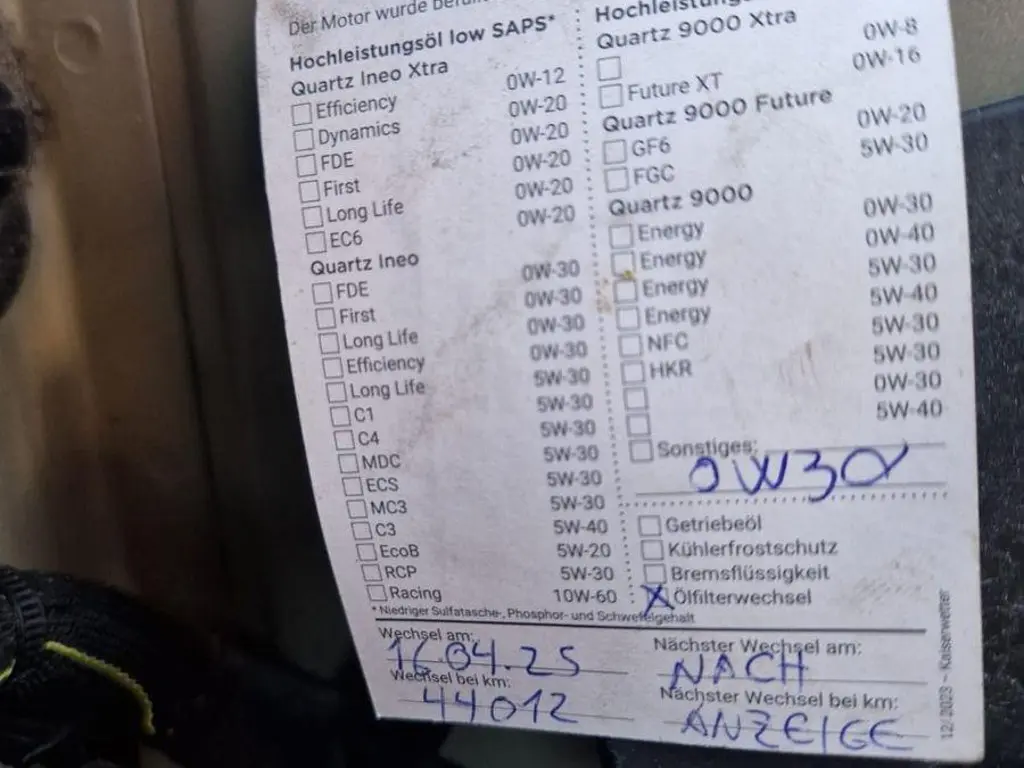 Der Motor wurde
Hochleistungsöl low SAPS*
Quartz Ineo Xtra
Efficiency 0W-12
Dynamics 0W-20
FDE 0W-20
First 0W-20
Long Life 0W-20
EC6 0W-20
Quartz Ineo
FDE 0W-30
First 0W-30
Long Life 0W-30
Efficiency 0W-30
Long Life 5W-30
C1 5W-30
C4 5W-30
MDC 5W-30
ECS 5W-30
MC3 5W-30
C3 5W-40
EcoB 5W-20
RCP 5W-30
Racing 10W-60
* Niedriger Sulfatasche-, Phosphor- und Schwefelgehalt
Quartz 9000 Xtra
0W-8
Future XT 0W-16
Quartz 9000 Future
GF6 0W-20
FGC 5W-30
Quartz 9000
Energy 0W-30
Energy 0W-40
Energy 5W-30
Energy 5W-40
NFC 5W-30
HKR 5W-30
0W-30
5W-40
Sonstiges:
0W30
Getriebeöl
Kühlerfrostschutz
Bremsflüssigkeit
X Ölfilterwechsel
Wechsel am:
16.04.25
Wechsel bei km:
44012
Nächster Wechsel am:
NACH
Nächster Wechsel bei km:
ANZEIGE
12/2023 – Kaiserwetter